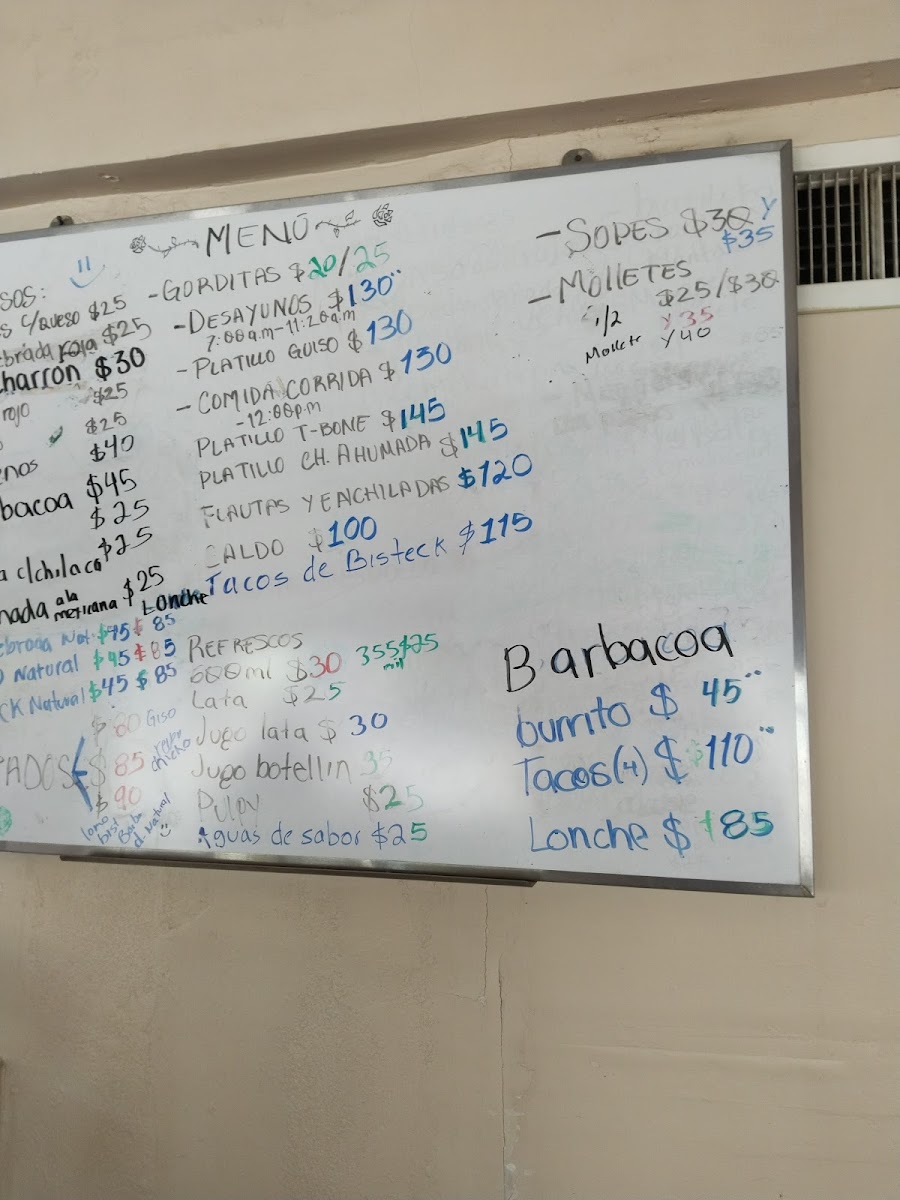 MENÚ
-GORDITAS $20/25
-DESAYUNOS $130
7:00a.m-11:20a.m
-PLATILLO GUISO $130
-COMIDA CORRIDA $130
-12:00p.m
PLATILLO T-BONE $145
PLATILLO CH. AHUMADA $145
FLAUTAS Y ENCHILADAS $120
CALDO $100
Tacos de Bisteck $115
REFRESCOS
600ml $30 355ml $25
Lata $25
Jugo lata $30
Jugo botellin 35
$25
Aguas de sabor $25
-SOPES $30 Y
$35
-MOLLETES
$25/$30
1/2 Y 35
Mollete Y 40
Barbacoa
burrito $ 45
Tacos(4) $ 110
Lonche $ 85
SOS:
s c/QUESO $25
ebrada roja $25
charron $30
rojo $25
$25
enos $40
bacoa $45
$25
a c/chilaca $25
nada a la mexicana $25
Lonche
ebrada Nat. $45 $ 85
Natural $45 $ 85
CK Natural $45 $ 85
$ 80 Giso
TADOS $ 85
$ 90